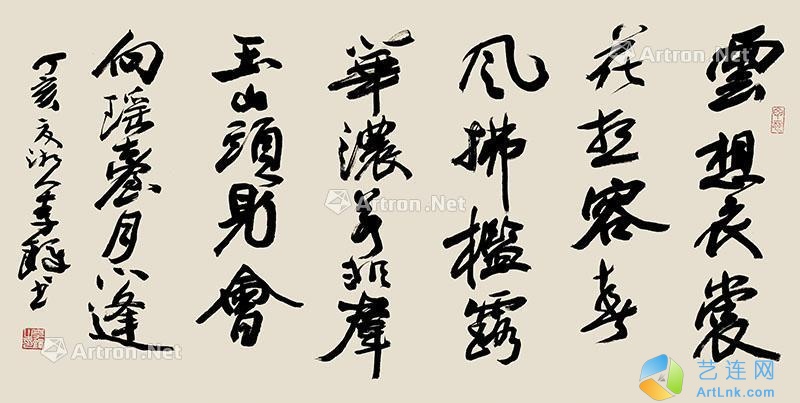 雲想衣裳
花想容春
風拂檻露
華濃若非羣
玉山頭見會
向瑶臺月下逢
丁亥夏湘人李鐸书
Artron.Net
Artron.Net
Artron.Net
Artron.Net
Artron.Net
艺连网
ArtLnk.com